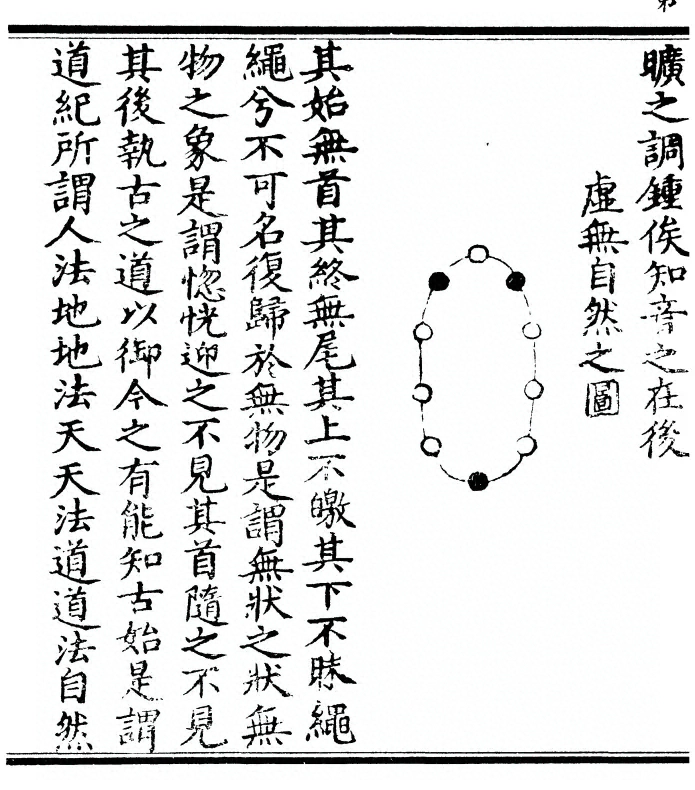 曠之調鍾俟知音之在後
虛無自然之圖
其始無首其終無尾其上不皦其下不昧繩
繩兮不可名復歸於無物是謂無狀之狀無
物之象是謂惚恍迎之不見其首隨之不見
其後執古之道以御今之有能知古始是謂
道紀所謂人法地地法天天法道道法自然